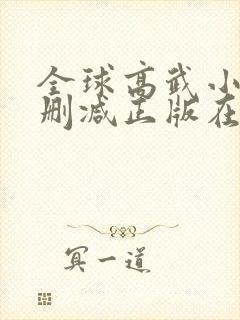 全球高武小
删减正版在
冥一道